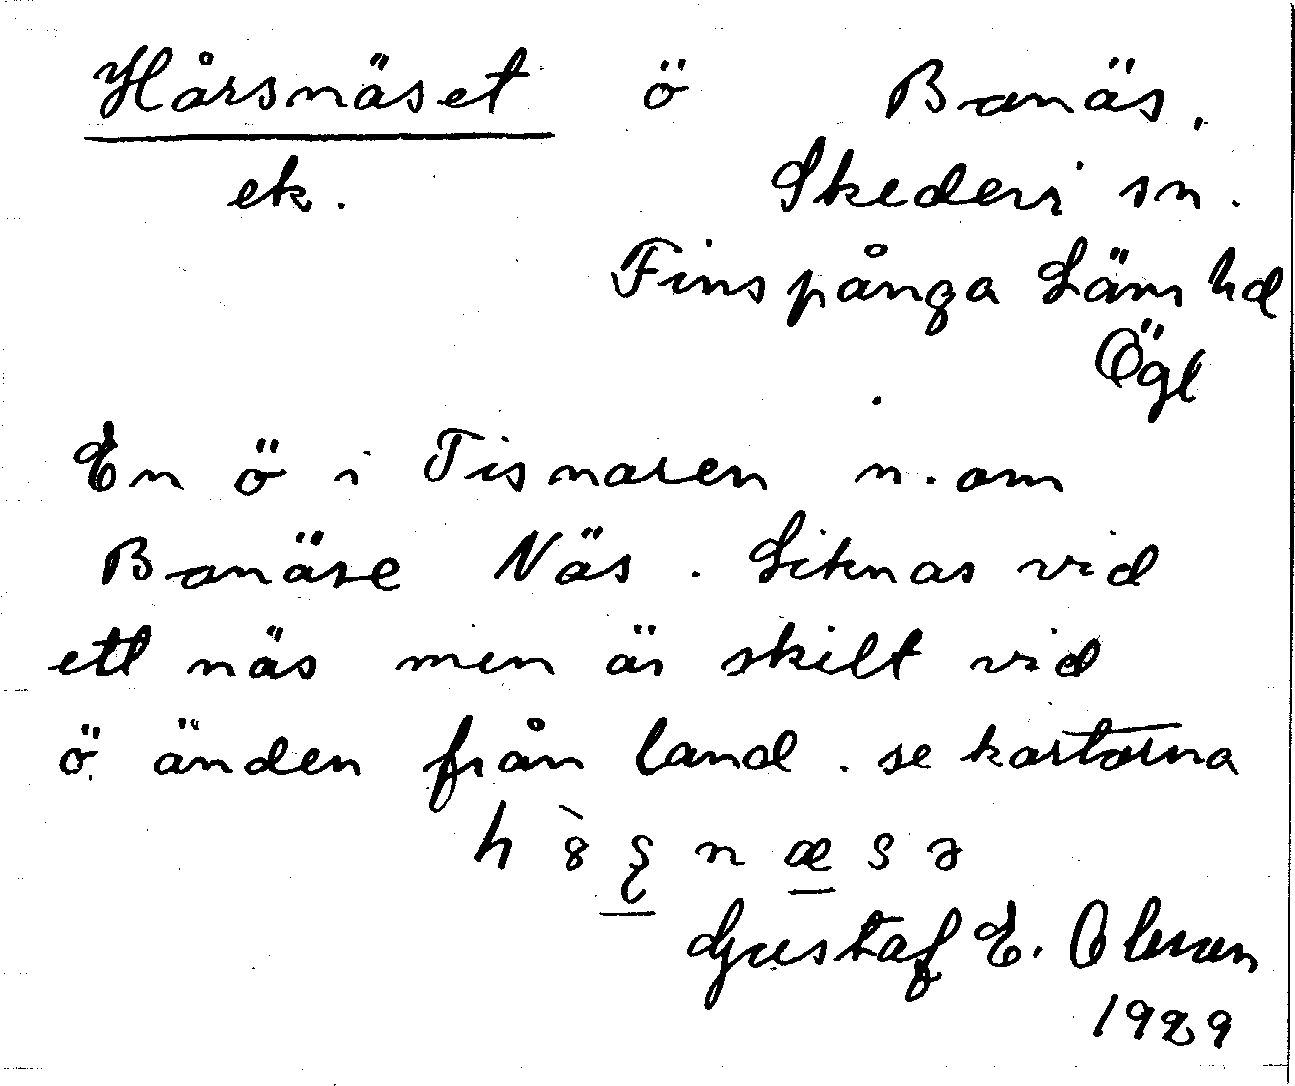 Hårsnäset ö Banäs,
ek. Skedevi sn.
Finspånga Läns hd
Ögl
En ö i Tisnaren n. om
Banäse Näs. Liknas vid
ett näs men är skilt vid
ö. änden från land. se kartorna
Gustaf E. Olsson
1929